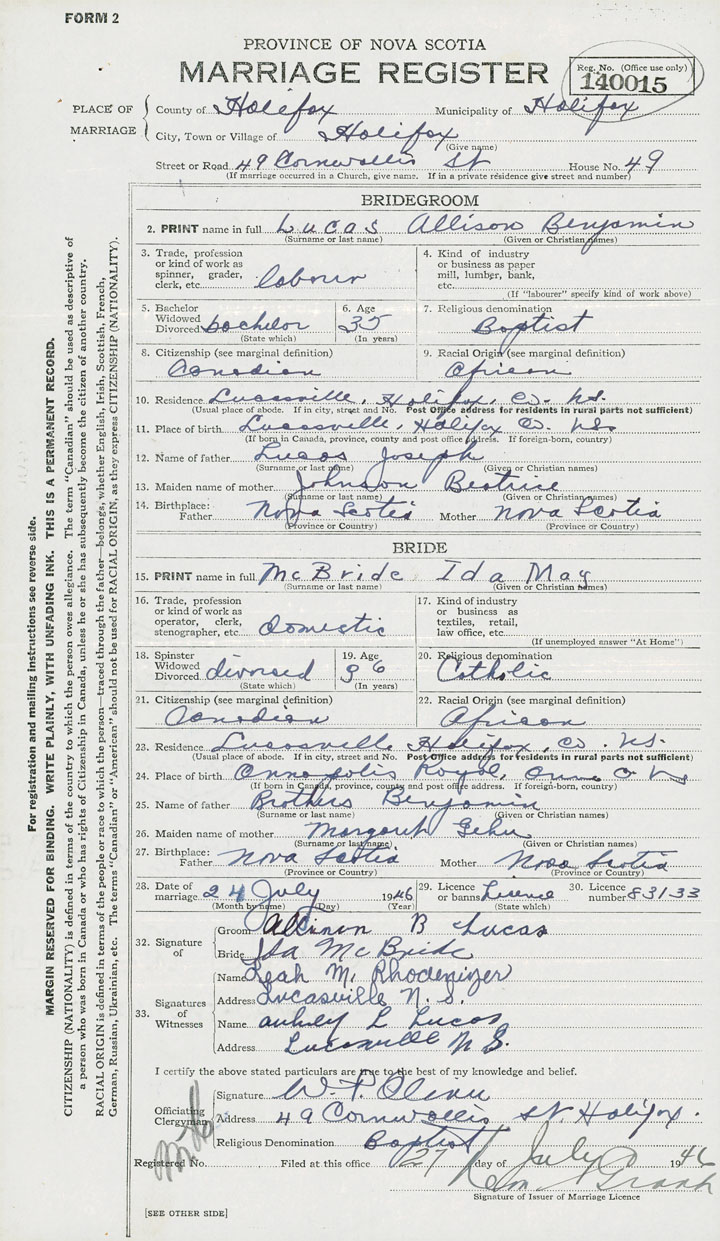 FORM 2
PROVINCE OF NOVA SCOTIA
MARRIAGE REGISTER
Reg. No. (Office use only)
140015
PLACE OF MARRIAGE
County of Halifax Municipality of Halifax
City, Town or Village of Halifax
(Give name)
Street or Road 49 Cornwallis St House No. 49
(If marriage occurred in a Church, give name. If in a private residence give street and number)
BRIDEGROOM
2. PRINT name in full Lucas Allison Benjamin
(Surname or last name) (Given or Christian names)
3. Trade, profession or kind of work as spinner, grader, clerk, etc. labour
4. Kind of industry or business as paper mill, lumber, bank, etc.
(If "labourer" specify kind of work above)
5. Bachelor Widowed Divorced bachelor
(State which)
6. Age 35
(In years)
7. Religious denomination
Baptist
8. Citizenship (see marginal definition)
Canadian
9. Racial Origin (see marginal definition)
African
10. Residence Lucasville, Halifax, Co. N.S.
(Usual place of abode. If in city, street and No. Post Office address for residents in rural parts not sufficient)
11. Place of birth Lucasville, Halifax Co. NS
(If born in Canada, province, county and post office address. If foreign-born, country)
12. Name of father Lucas Joseph
(Surname or last name) (Given or Christian names)
13. Maiden name of mother Johnson Beatrice
(Surname or last name) (Given or Christian names)
14. Birthplace: Father Nova Scotia Mother Nova Scotia
(Province or Country) (Province or Country)
BRIDE
15. PRINT name in full McBride Ida May
(Surname or last name) (Given or Christian names)
16. Trade, profession or kind of work as operator, clerk, stenographer, etc. Domestic
17. Kind of industry or business as textiles, retail, law office, etc.
(If unemployed answer "At Home")
18. Spinster Widowed Divorced divorced
(State which)
19. Age 36
(In years)
20. Religious denomination
Catholic
21. Citizenship (see marginal definition)
Canadian
22. Racial Origin (see marginal definition)
African
23. Residence Lucasville Halifax, Co. N.S.
(Usual place of abode. If in city, street and No. Post Office address for residents in rural parts not sufficient)
24. Place of birth Annapolis Royal, Co NS
(If born in Canada, province, county and post office address. If foreign-born, country)
25. Name of father Brothers Benjamin
(Surname or last name) (Given or Christian names)
26. Maiden name of mother Margaret
(Surname or last name) (Given or Christian names)
27. Birthplace: Father Nova Scotia Mother Nova Scotia
(Province or Country) (Province or Country)
28. Date of marriage 24 July 1946
(Month by name) (Day) (Year)
29. Licence or banns Licence
(State which)
30. Licence number 83133
32. Signature of
Groom Allison B Lucas
Bride Ida McBride
33. Signatures of Witnesses
Name Leah M. Rhodenizer
Address Lucasville N.S.
Name L Lucas
Address Lucasville N.S.
I certify the above stated particulars are true to the best of my knowledge and belief.
Officiating Clergyman
Signature W. P. Oliver
Address 49 Cornwallis St. Halifax.
Religious Denomination Baptist
Registered No. Filed at this office 27 day of July 1946
Signature of Issuer of Marriage Licence
[SEE OTHER SIDE]
For registration and mailing instructions see reverse side.
MARGIN RESERVED FOR BINDING. WRITE PLAINLY, WITH UNFADING INK. THIS IS A PERMANENT RECORD.
CITIZENSHIP (NATIONALITY) is defined in terms of the country to which the person owes allegiance. The term "Canadian" should be used as descriptive of
a person who was born in Canada or who has rights of Citizenship in Canada, unless he or she has subsequently become the citizen of another country.
RACIAL ORIGIN is defined in terms of the people or race to which the person—traced through the father—belongs, whether English, Irish, Scottish, French,
German, Russian, Ukrainian, etc. The terms "Canadian" or "American" should not be used for RACIAL ORIGIN, as they express CITIZENSHIP (NATIONALITY).